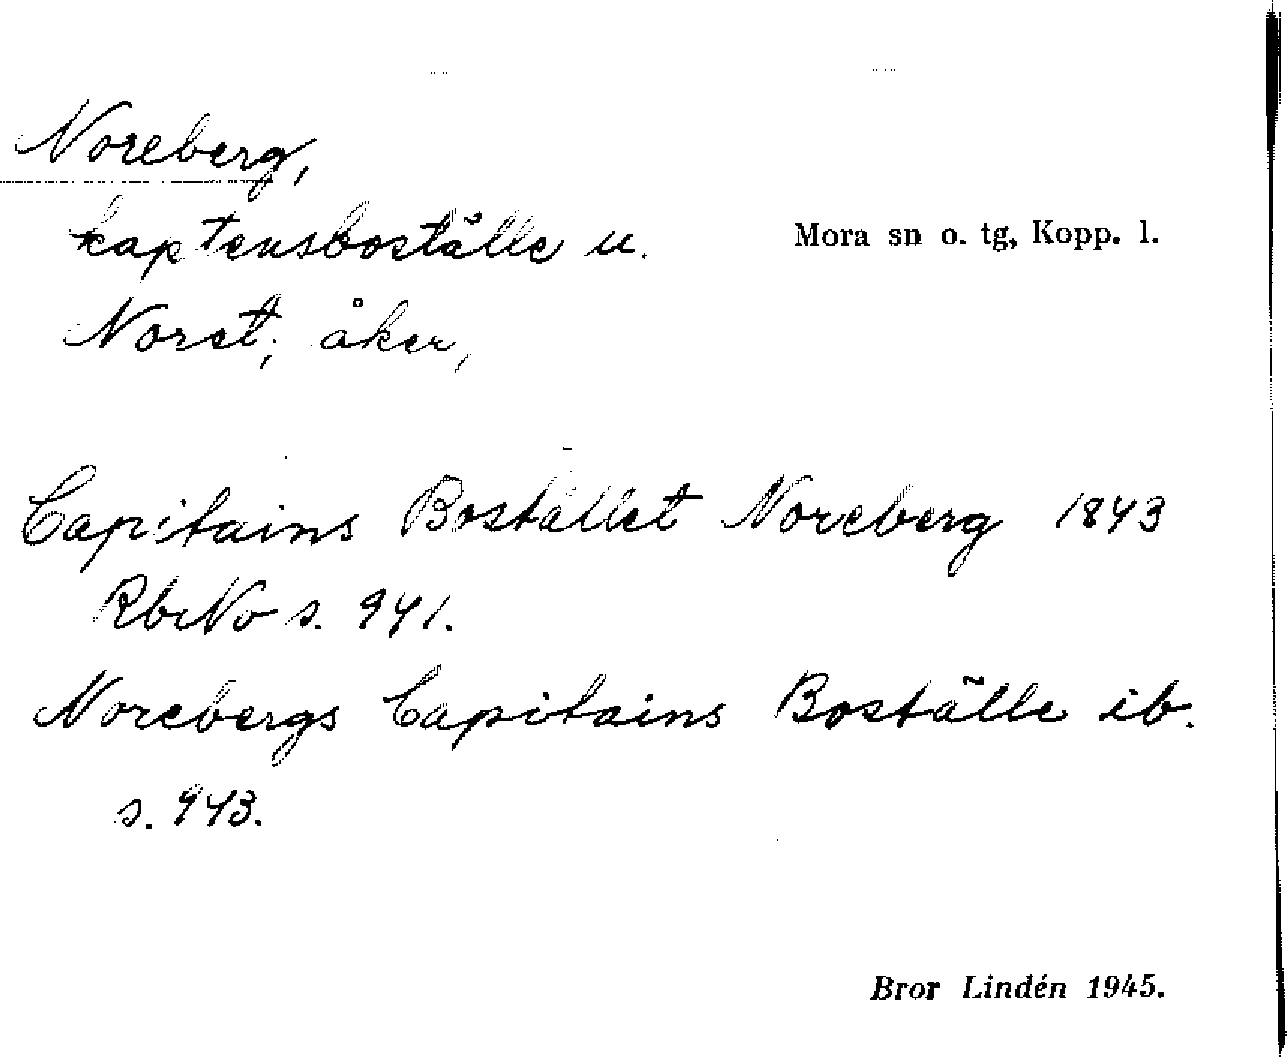 Noreberg,
kaptensboställe u.
Mora sn o. tg, Kopp. l.
Noret; åker,
Capitains Bostället Noreberg 1843
RbrNo s. 941.
Norebergs Capitains Boställe ib.
s. 943.
Bror Lindén 1945.